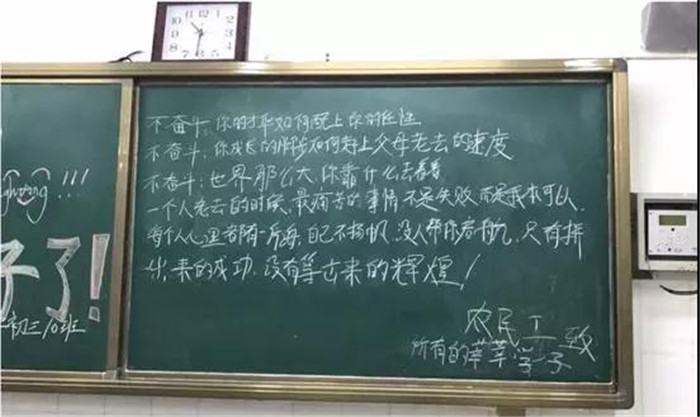 不奋斗,你的才华如何配上你的任性
不奋斗,你成长的脚步如何赶上父母老去的速度
不奋斗,世界那么大,你靠什么去看看
一个人老去的时候,最痛苦的事情不是失败而是我本可以
每个人心里都有一片海,自己不扬帆,没人帮你启航,只有拼
出来的成功,没有等出来的辉煌!
农民工致
所有的莘莘学子
!!!
子了!
初三10班